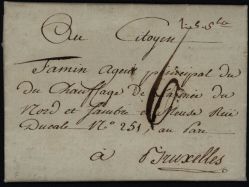 Au Citoyen
Famin Agent principal du
du Chauffage de l'armée du
Nord et Sambre et Meuse Rue
Ducale N° 251 au Parc
à Bruxelles
6